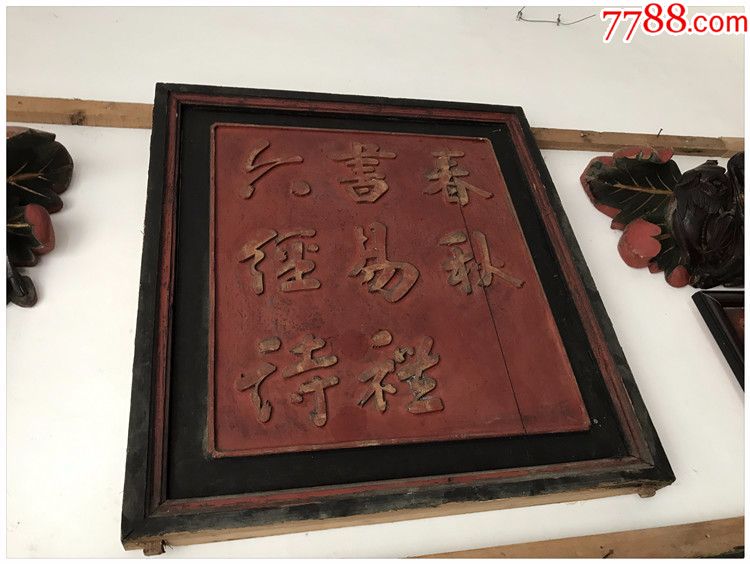 7788.com
六經詩
書易禮
春秋